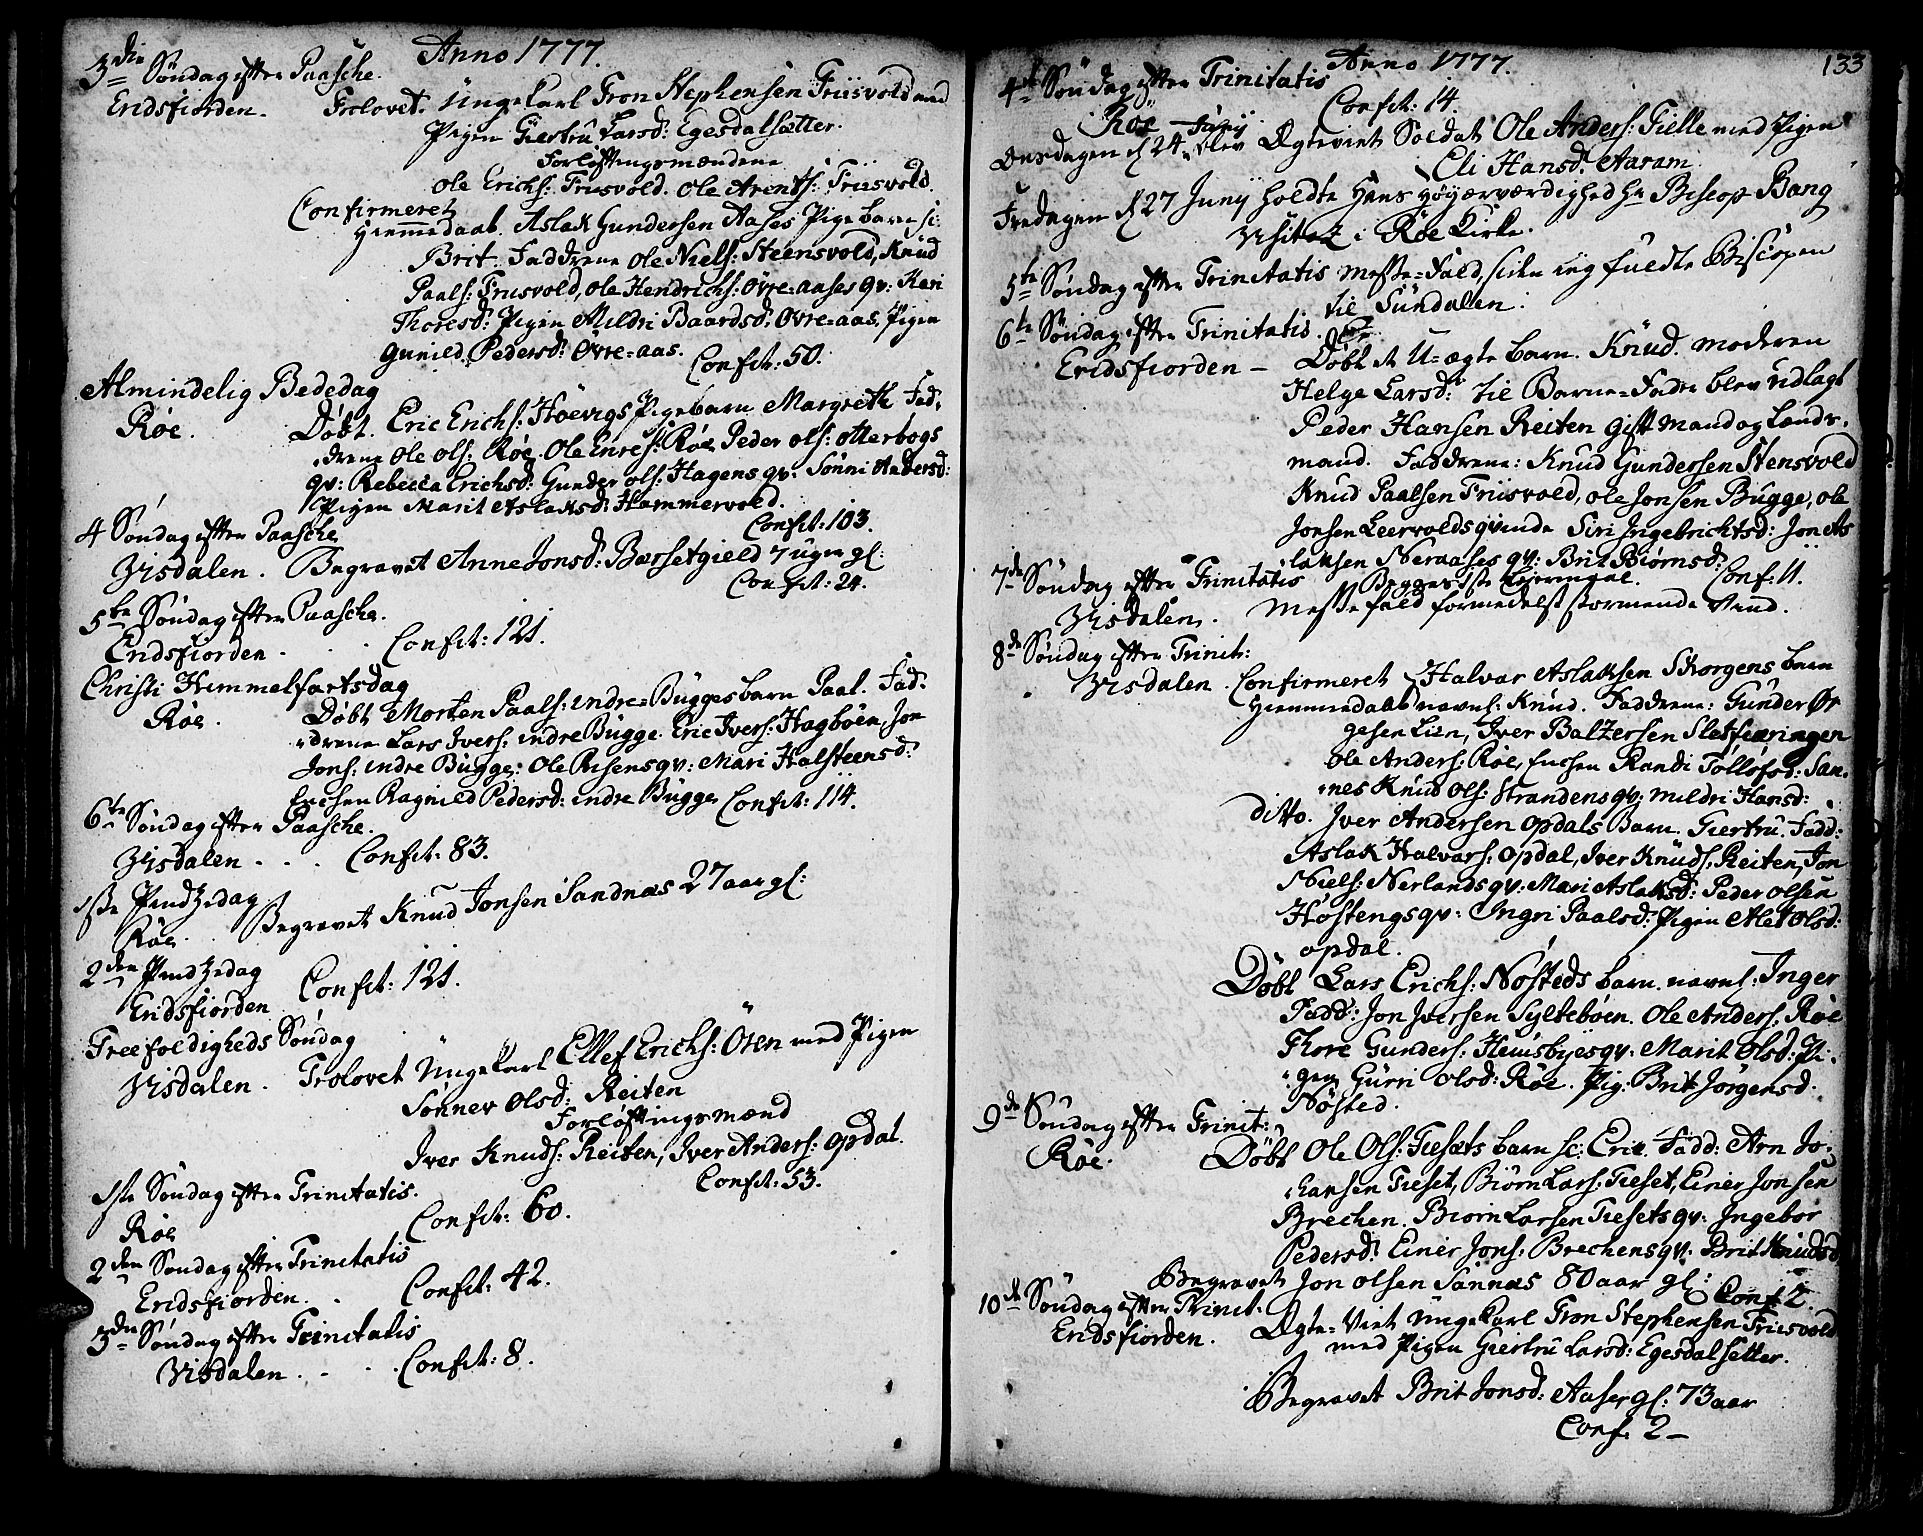 Anno 1777.
3die Søndag efter Paasche.
Eridsfiorden. Trolovet. Ungekarl Tron Stephensen Friisvold med
Pigen Giertru Larsd: Egesdalsætter.
Forløftningsmændene
Ole Erichs: Friisvold. Ole Arents: Friisvold.
Confirmeret
Hiemmedaab. Aslak Gundersen Aases Pigebarn
Brit. Faddrene Ole Niels: Steensvold, Knud
Paals: Friisvold, Ole Hendrichs: Øvre-aases qv: Kari
Thoresd: Pigen Mildri Baardsd: Øvre-aas, Pigen
Gunild Pedersd: Øvre-aas.
Confit: 50.
Almindelig Bededag
Røe. Døbt. Eric Erichs: Hoevigs Pigebarn Margreth Fad-
drene Ole Ols: Røe. Ole Enres: Røe Peder Ols: Otterbogs
qv: Rebecca Erichsd: Gunder Ols: Hagens qv: Sønni Andersd:
Pigen Marit Aslaksd: Hammervold.
Confit: 103.
4 Søndag efter Paasche
Visdalen. Begravet Anne Jonsd: Barsetgield 7 uger gl:
Confit: 24.
5te Søndag efter Paasche.
Eridsfiorden . . Confit: 121.
Christi Himmelfartsdag
Røe. Døbt Morten Paals: indre Bugges barn Paal. Fad-
drene Lars Ivers: indre Bugge. Eric Ivers: Hagbøen, Jon
Jons: indre Bugge: Ole Risens qv: Mari Halsteensd:
Enchen Ragnild Pedersd: indre Bugge Confit: 114.
6te Søndag efter Paasche.
Visdalen . . . Confit: 83.
1ste Pindzedag
Røe. Begravet Knud Jonsen Sandnæs 27 aar gl:
2den Pindzedag Confit: 121.
Eridsfiorden
Treefoldigheds Søndag
Visdalen. Trolovet Ungekarl Ellef Erichs: Øren med Pigen
Sønnev Olsd: Reiten
Forløftningsmænd
Iver Knuds: Reiten, Iver Anders: Opdal.
Confit: 53.
1ste Søndag efter Trinitatis.
Røe Confit: 60.
2den Søndag efter Trinitatis
Eridsfiorden. . Confit: 42.
3die Søndag efter Trinitatis
Visdalen . . . Confit: 8.
Anno 1777. 133
4de Søndag efter Trinitatis
Røe Confit: 14.
Juny
Onsdagen d 24 blev Ægteviet Soldat Ole Anders: Tielle med Pigen
Eli Hansd: Aaram.
Fredagen d 27 Juny holdte Hans Høyærværdighed Hr Biscop Bang
Visitaz i Røe Kirke.
5te Søndag efter Trinitatis Messe-Fald, siden jeg fuldte Biscopen
til Sundalen.
6te Søndag efter Trinitatis.
Eridsfiorden — Døbt et U-ægte barn. Knud. moderen
Helge Larsd: til Barne-Fader blev udlagt
Peder Hansen Reiten Gift mand og Lands-
mand. Faddrene: Knud Gundersen Stensvold
Knud Paalsen Friisvold, Ole Jonsen Bugge, Ole
Jonsen Leervolds qvinde Siri Ingebrichtsd: Jon As
laksen Neraases qv: Brit Biørnsd:
Begges 1ste Leiermaal. Conf: 11.
7de Søndag efter Trinitatis
Visdalen. Messefald formedelst stormende Vind.
8de Søndag efter Trinit:
Visdalen. Confirmeret Halvar Aslaksen Skorgens barn
Hiemmedaab navnl: Knud. Faddrene: Gunder Ør
gesen Lien, Iver Baltzersen Sletfæringen
Ole Anders: Røe, Enchen Randi Tollofsd: San-
nes Knud Ols: Strandens qv: Mildri Hansd:
ditto. Iver Andersen Opdals Barn. Giertru. Fadd:
Aslak Halvars: Opdal, Iver Knuds: Reiten, Jon
Niels: Nerlands qv: Mari Aslaksd: Peder Olsen
Høstengs qv: Ingri Paalsd: Pigen Alet Olsd:
Opdal.
Døbt Lars Erichs: Nøsteds barn navnl: Inger
Fadd: Jon Iversen Syltebøen. Ole Anders: Røe
Thore Gunders: Heinsbyes qv: Marit Olsd: Pi-
gen Gurri Olsd: Røe. Pig: Brit Jørgensd.
Nøsted.
9de Søndag efter Trinit:
Røe. Døbt Ole Ols: Tiesets barn Eric. Fadd: Arn Jo-
hansen Tieset, Biørn Lars: Tieset, Einer Jonsen
Brechen. Biørn Larsen Tiesets qv: Ingebor
Pedersd: Einer Jons: Brechens qv: Brit Knudsd
Begravet Jon Olsen Sannæs 80 aar gl:
Conf: 2.
10de Søndag efter Trinit.
Eridsfiorden. Ægte-Viet Ungekarl Tron Stephensen Friisvold
med Pigen Giertru Larsd: Egesdalsetter.
Begravet Brit Jonsd: Aases gl: 73 aar
Conf: 2 —